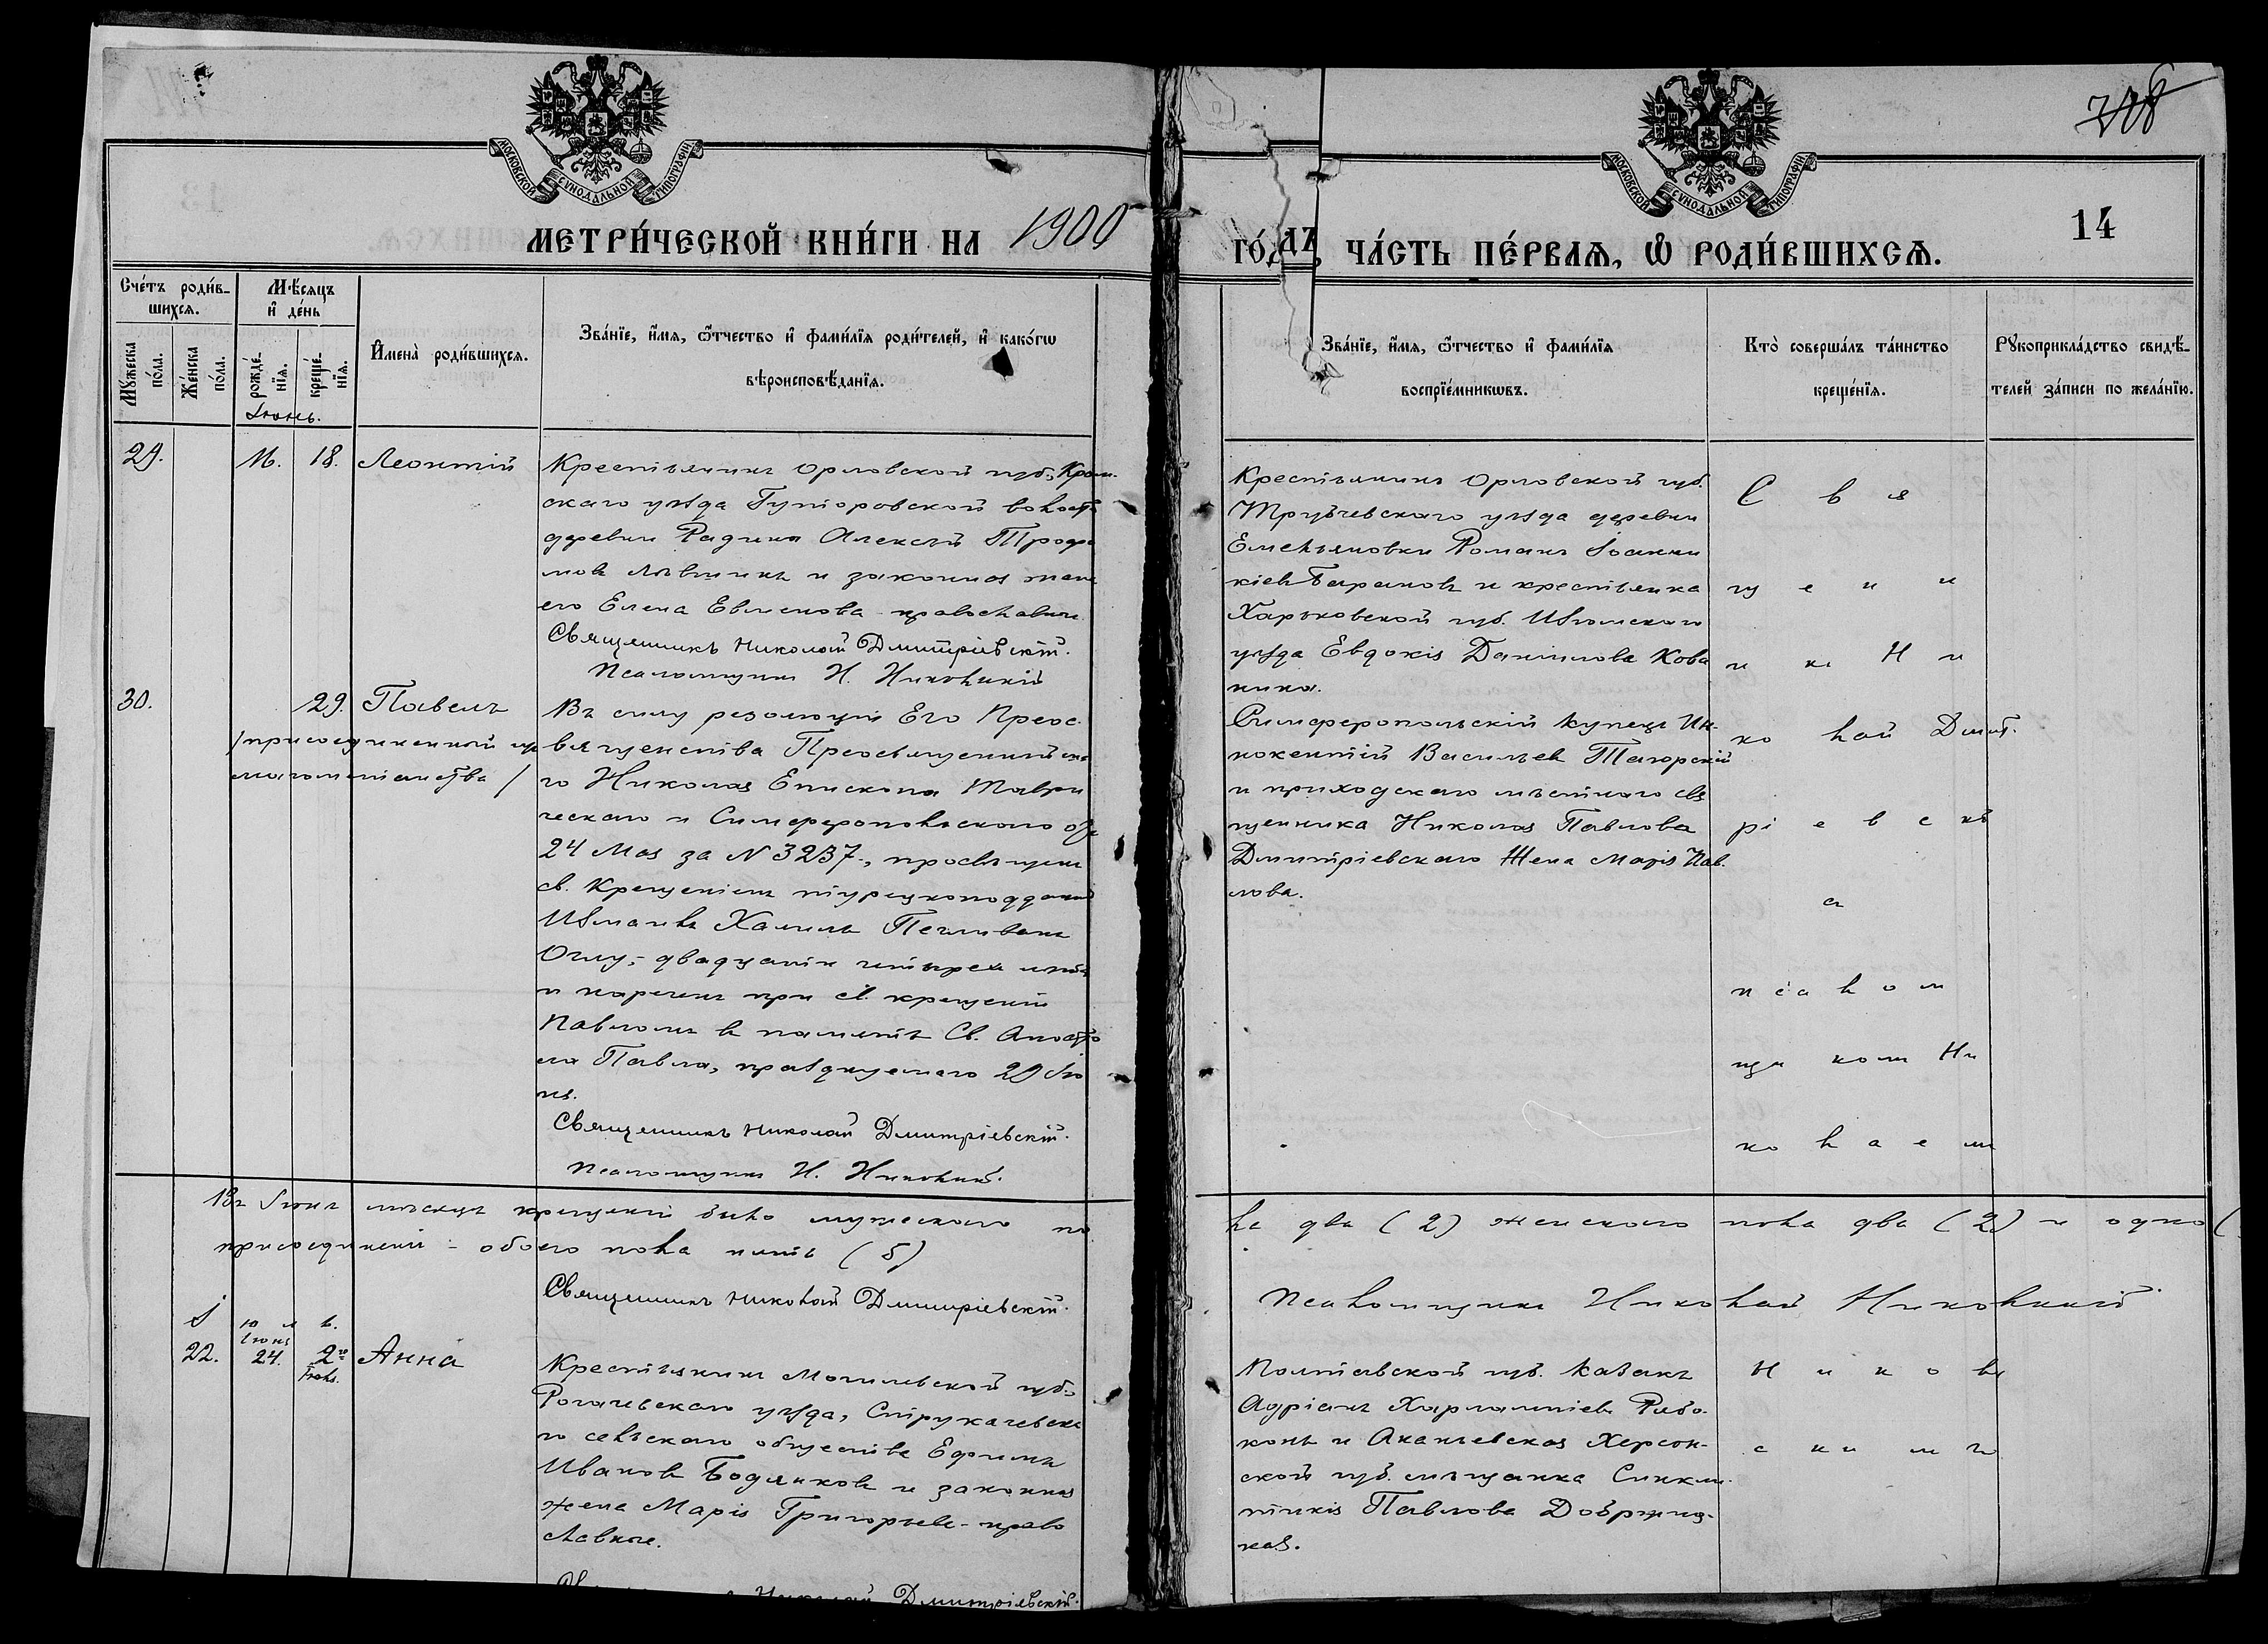 708
МОСКОВСКОЙ СУНОДАЛЬНОЙ ТИПОГРАФІИ
МОСКОВСКОЙ СУНОДАЛЬНОЙ ТИПОГРАФІИ
14
МЕТРИ́ЧЕСКОЙ КНИ́ГИ НА 1900 ГО́ДЪ, ЧА́СТЬ ПЕ́РВАѦ, Ѡ҆ РОДИ́ВШИХСѦ.
Сче́тъ роди́в-
шихсѧ.
Мѣ́сѧцъ
и҆ де́нь
Мꙋ́жеска
по́ла.
Же́нска
по́ла.
рожде́-
нїѧ.
креще́-
нїѧ.
И҆мена̀ роди́вшихсѧ.
Зва́нїе, и҆́мѧ, ѻ҆́тчество и҆ фами́лїѧ роди́телей, и҆ како́гѡ
вѣроисповѣ́данїѧ.
Зва́нїе, и҆́мѧ, ѻ҆́тчество и҆ фами́лїѧ
воспрїе́мникѡвъ.
Кто̀ соверша́лъ та́инство
креще́нїѧ.
Рꙋкоприкла́дство свидѣ́-
телей за́писи по жела́нїю.
Іюнь.
29.
18.
Леонтій
Крестьянинъ Орловской губ., Кром-
скаго уѣзда Гуторовской волости
деревни Радина Алексѣй Трофи
мов и законная жена
его Елена Евменова православные
Священникъ Николай Дмитріевскій.
Псаломщикъ Н. Никольскій
Крестьянинъ Орловской губ.
Трубчевскаго уѣзда деревни
Емельяновки Романъ Іоанни
кіевъ Барановъ и крестьянка
Харьковской губ. Изюмскаго
уѣзда Евдокія Даніилова Кова
кина.
С в я
щ е н н
и къ Н и
ко лай Дмит.
рі е в с кій
съ
псалом
щи комъ Ни
ко ла е мъ
30.
29.
Павелъ
/присоединенный изъ
магометанства/
Въ силу резолюціи Его Преос-
вященства Преосвященнѣйша
го Николая Епископа Таври
ческаго и Симферопольскаго отъ
24 Мая за N 3237, просвѣщенъ
св. Крещеніемъ турецкоподданный
Измаилъ Халилъ Пегливанъ
Оглу, двадцати четырехъ лѣтъ
и нареченъ при св. крещеніи
Павломъ въ память Св. Апосто
ла Павла, празднуемаго 29 Ію
ня.
Священникъ Николай Дмитріевскій.
Псаломщикъ Н. Никольскій.
Симферопольскій купецъ Ин-
нокентій Васильевъ Тагорскій
и приходскаго мѣстнаго свя
щенника Николая Павлова
Дмитріевскаго жена Марія Пав-
лова.
Въ Іюнѣ мѣсяцѣ крещеній было мужескаго по ла два (2) женскаго пола два (2) и одно (
присоединеніе - обоего пола пять (5)
Священникъ Николай Дмитріевскій.
Псаломщикъ Николай Никольскій.
І ю л ь.
22.
Іюня
24.
2го
Іюля.
Анна
Крестьянинъ Могилевской губ.
Рогачевскаго уѣзда, Струкачевска
го сельскаго общества Ефимъ
Ивановъ Бодяковъ и законная
жена Марія Григорьева - право
славные.
Николай Дмитріевскій.
Полтавской губ. казакъ
Адріанъ Харлампіевъ Рябо-
конь и Ананьевская Херсон-
ской губ. мѣщанка Синкли-
тикія Павлова Добржин-
кая.